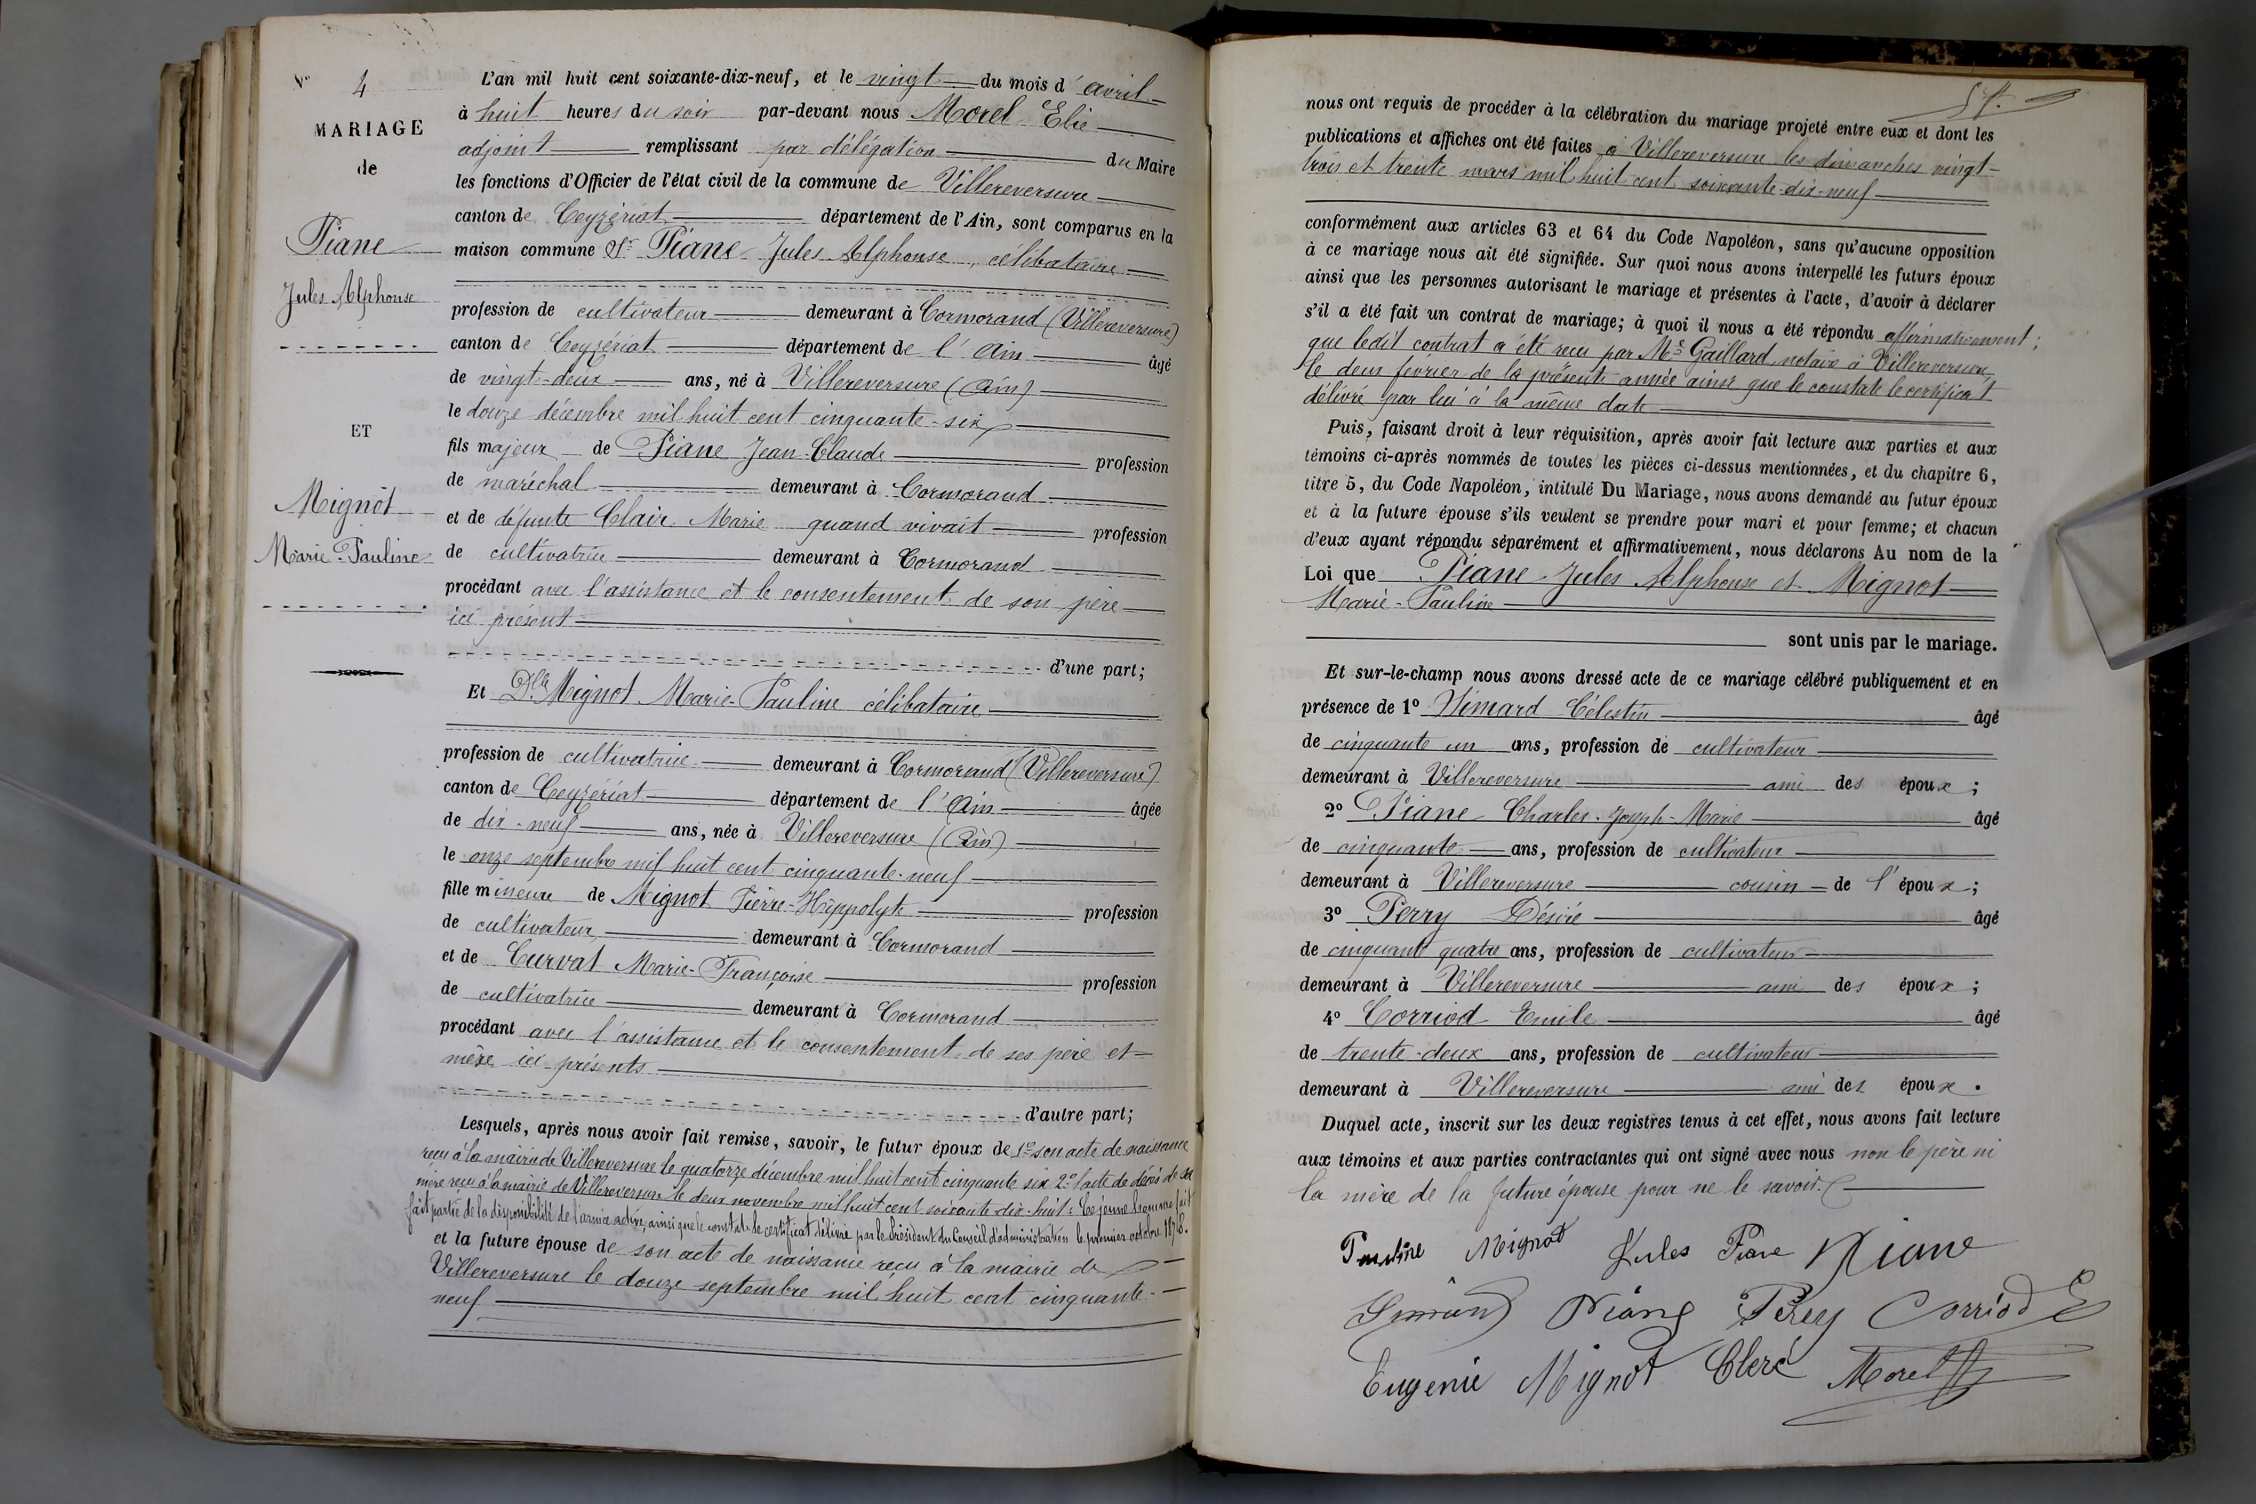 N° 4
MARIAGE
de
Piane
Jules Alphonse
ET
Mignot
Marie-Pauline
L'an mil huit cent soixante-dix-neuf, et le vingt du mois d'avril
à huit heures du soir par-devant nous Morel Elie
adjoint remplissant par délégation du Maire
les fonctions d'Officier de l'état civil de la commune de Villereversure
canton de Ceyzériat département de l'Ain, sont comparus en la
maison commune Sr Piane Jules Alphonse, célibataire
profession de cultivateur demeurant à Cormorand (Villereversure)
canton de Ceyzériat département de l'Ain âgé
de vingt-deux ans, né à Villereversure (Ain)
le douze décembre mil huit cent cinquante-six
fils majeur de Piane Jean-Claude profession
de maréchal demeurant à Cormorand
et de défunte Clair Marie quand vivait profession
de cultivatrice demeurant à Cormorand
procédant avec l'assistance et le consentement de son père
ici présent
d'une part;
Et Dlle Mignot Marie-Pauline célibataire
profession de cultivatrice demeurant à Cormorand (Villereversure)
canton de Ceyzériat département de l'Ain âgée
de dix-neuf ans, née à Villereversure (Ain)
le onze septembre mil huit cent cinquante-neuf
fille mineure de Mignot Pierre-Hippolyte profession
de cultivateur demeurant à Cormorand
et de Curvat Marie-Françoise profession
de cultivatrice demeurant à Cormorand
procédant avec l'assistance et le consentement de ses père et
mère ici présents
d'autre part;
Lesquels, après nous avoir fait remise, savoir, le futur époux de 1° son acte de naissance
reçu à la mairie de Villereversure le quatorze décembre mil huit cent cinquante six 2° l'acte de décès de sa
mère reçu à la mairie de Villereversure le deux novembre mil huit cent soixante dix-huit: Ce jeune homme fait
fait partie de la disponibilité de l'armée active, ainsi que le constate le certificat délivré par le Président du Conseil d'administration le premier octobre 1878.
et la future épouse de son acte de naissance reçu à la mairie de
Villereversure le douze septembre mil huit cent cinquante-
neuf
nous ont requis de procéder à la célébration du mariage projeté entre eux et dont les
publications et affiches ont été faites à Villereversure les dimanches vingt-
trois et trente mars mil huit cent soixante-dix-neuf
conformément aux articles 63 et 64 du Code Napoléon, sans qu'aucune opposition
à ce mariage nous ait été signifiée. Sur quoi nous avons interpellé les futurs époux
ainsi que les personnes autorisant le mariage et présentes à l'acte, d'avoir à déclarer
s'il a été fait un contrat de mariage; à quoi il nous a été répondu affirmativement;
que ledit contrat a été reçu par Me Gaillard, notaire à Villereversure
le deux février de la présente année ainsi que le constate le certificat
délivré par lui à la même date
Puis, faisant droit à leur réquisition, après avoir fait lecture aux parties et aux
témoins ci-après nommés de toutes les pièces ci-dessus mentionnées, et du chapitre 6,
titre 5, du Code Napoléon, intitulé Du Mariage, nous avons demandé au futur époux
et à la future épouse s'ils veulent se prendre pour mari et pour femme; et chacun
d'eux ayant répondu séparément et affirmativement, nous déclarons Au nom de la
Loi que Piane Jules Alphonse et Mignot
Marie-Pauline
sont unis par le mariage.
Et sur-le-champ nous avons dressé acte de ce mariage célébré publiquement et en
présence de 1° Célestin âgé
de cinquante un ans, profession de cultivateur
demeurant à Villereversure ami des époux;
2° Piane Charles-Joseph-Marie âgé
de cinquante ans, profession de cultivateur
demeurant à Villereversure cousin de l'époux;
3° Perry Désiré âgé
de cinquante quatre ans, profession de cultivateur
demeurant à Villereversure ami des époux;
4° Corriod Emile âgé
de trente-deux ans, profession de cultivateur
demeurant à Villereversure ami des époux.
Duquel acte, inscrit sur les deux registres tenus à cet effet, nous avons fait lecture
aux témoins et aux parties contractantes qui ont signé avec nous non le père ni
la mère de la future épouse pour ne le savoir.
Pauline Mignot Jules Piane Piane
Piane Perey Corriod E
Eugenie Mignot Clerc Morel